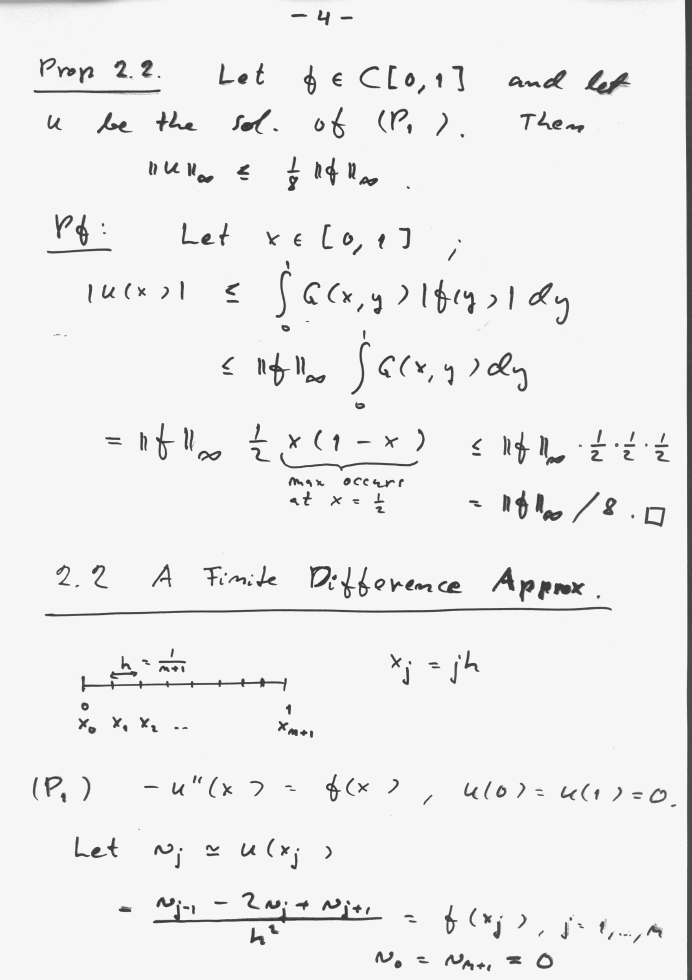 - 4 -
Prop 2.2. Let f ∈ C[0,1] and let
u be the sol. of (P₁). Then
‖u‖∞ ≤ 1/8 ‖f‖∞.
Pf: Let x ∈ [0,1];
|u(x)| ≤ ∫₀¹ G(x,y)|f(y)| dy
≤ ‖f‖∞ ∫₀¹ G(x,y) dy
= ‖f‖∞ 1/2 x(1-x) ≤ ‖f‖∞ · 1/2 · 1/2 · 1/2
max occurs
at x = 1/2 = ‖f‖∞ / 8. □
2.2 A Finite Difference Approx.
h = 1/(n+1) xⱼ = jh
0 1
x₀ x₁ x₂ .. xₙ₊₁
(P₁) - u"(x) = f(x), u(0) = u(1) = 0.
Let vⱼ ≃ u(xⱼ)
- (vⱼ₋₁ - 2vⱼ + vⱼ₊₁)/h² = f(xⱼ), j = 1,...,n
v₀ = vₙ₊₁ = 0